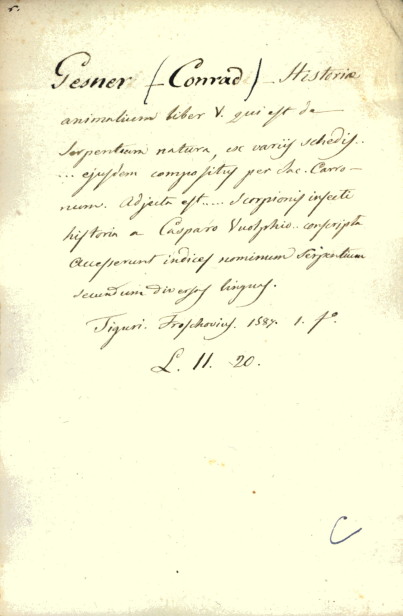 r.
Gesner (Conrad) _ Historiæ
animalium liber V. qui est de
Serpentum natura, ex variis schedis..
.... ejusdem compositus per Jac. Carro-
num. Adjecta est..... Scorpionis insecti
historia a Casparo Vuolphio.. conscripta
Accesserunt indices nominum Serpentum
secundum diversas linguas.
Tiguri. Froschovius. 1587. 1. f°.
L. 11. 20.
C